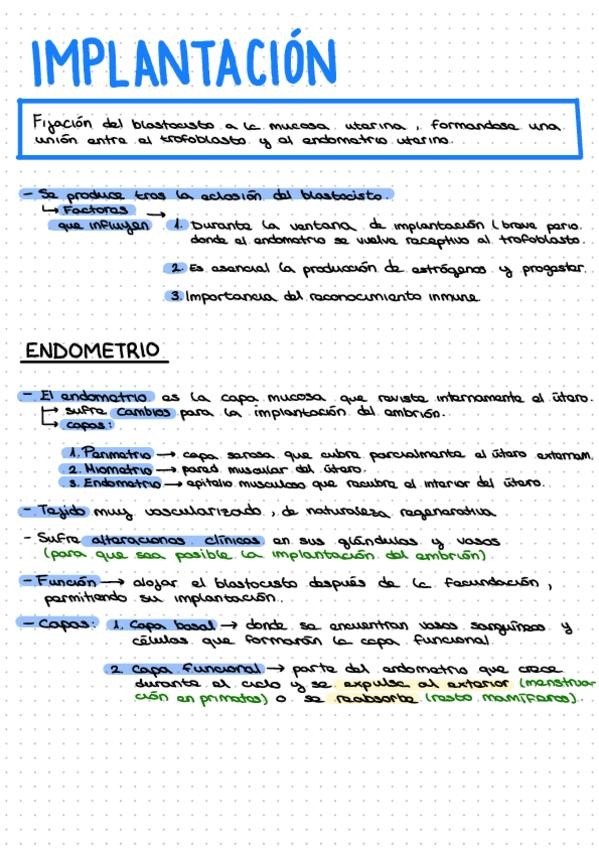 IMPLANTACIÓN
Fijación del blastocisto a la mucosa uterina, formandose una
unión entre el trofoblasto y el endometrio uterino.
- Se produce tras la eclosión del blastocisto.
↳ Factores →
que influyen 1. Durante la ventana de implantación (breve perio.
donde el endometrio se vuelve receptivo al trofoblasto.
2. Es esencial la producción de estrógenos y progester.
3. Importancia del reconocimiento inmune
ENDOMETRIO
- El endometrio es la capa mucosa que reviste internamente el útero.
↳ sufre cambios para la implantación del embrión.
↳ capas:
1. Perimetrio → capa serosa que cubre parcialmente el útero externam.
2. Miometrio → pared muscular del útero.
3. Endometrio → epitelio musculoso que recubre el interior del útero.
- Tejido muy vascularizado, de naturaleza regenerativa
- Sufre alteraciones clínicas en sus glándulas y vasos
(para que sea posible la implantación del embrión)
- Función → alojar el blastocisto después de la fecundación,
permitiendo su implantación.
- Capas: 1. Capa basal → donde se encuentran vasos sanguíneos y
células que formarán la capa funcional
2. Capa Funcional → parte del endometrio que crece
durante el ciclo y se expulsa al exterior (menstrua-
ción en primates) o se reabsorbe (resto mamíferos).